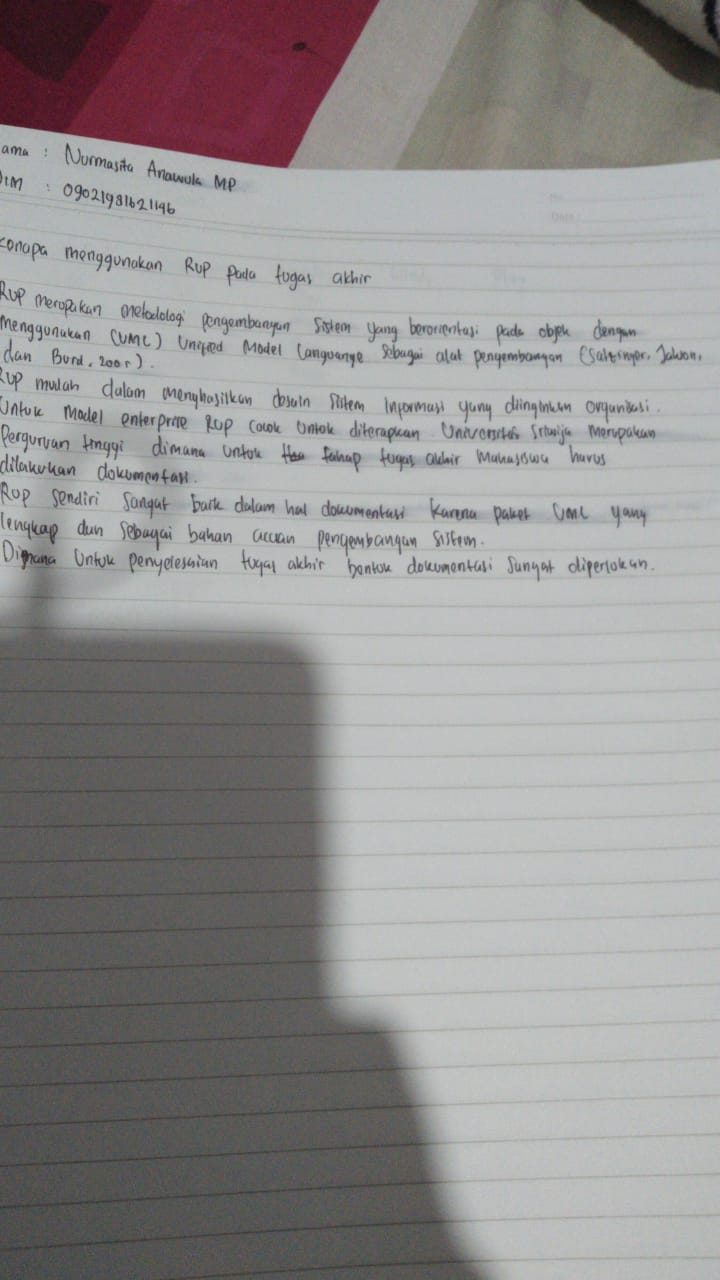 ama : Nurmasita Anawula MP
NIM : 09021981621146
Kenapa menggunakan RUP pada tugas akhir
RUP merupakan metodologi pengembangan sistem yang berorientasi pada objek dengan
menggunakan (UML) Unified Model Languange sebagai alat pengembangan (Satzinger, Jakson,
dan Burd, 2005).
RUP mudah dalam menghasilkan desain sistem informasi yang diinginkan organisasi.
Untuk model enterprise RUP cocok untuk diterapkan. Universitas Sriwija merupakan
Perguruan tinggi dimana untuk tahap tugas akhir Mahasiswa harus
dilakukan dokumentasi.
RUP sendiri sangat baik dalam hal dokumentasi karena paket UML yang
lengkap dan sebagai bahan acuan pengembangan sistem.
Dimana untuk penyelesaian tugas akhir bentuk dokumentasi sangat diperlukan.